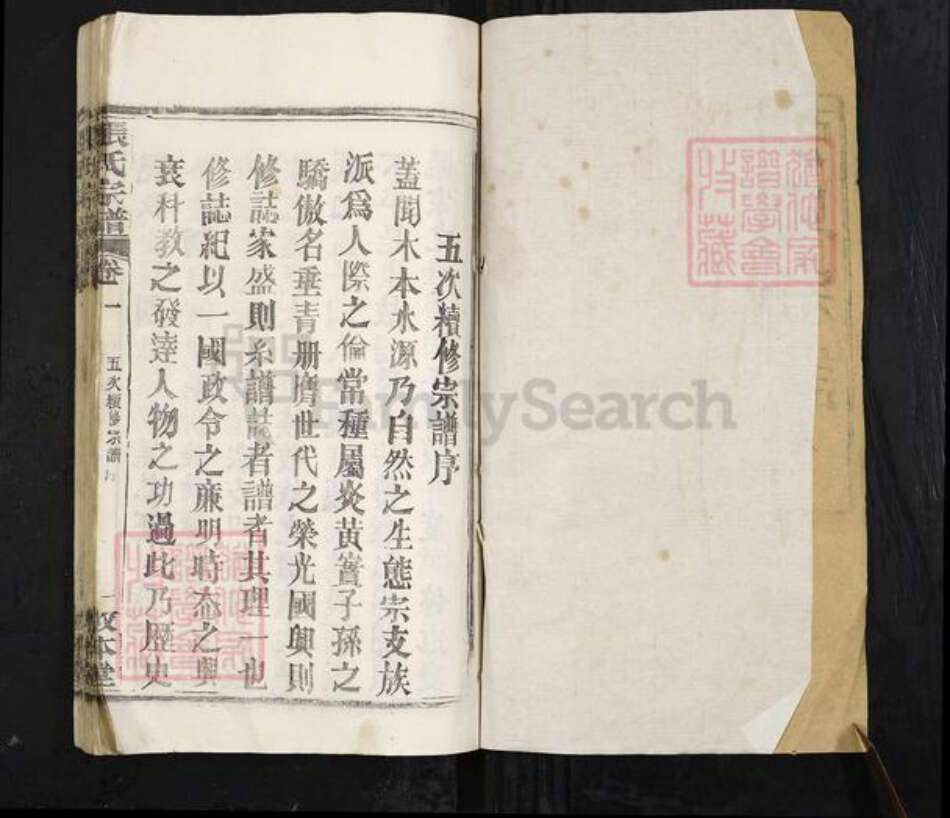 五次續修宗譜序
蓋聞木本水源乃自然之生態宗支族
派為人際之倫常種屬炎黃實子孫之
驕傲名垂青册膺世代之榮光國興則
修誌家盛則系譜誌者譜者其理一也
修誌紀以一國政令之廉明時态之興
衰科教之發達人物之功過此乃歷史
張氏宗譜 卷一 五次續修宗譜序 一 敦本堂
譜學會
收藏
FamilySearch